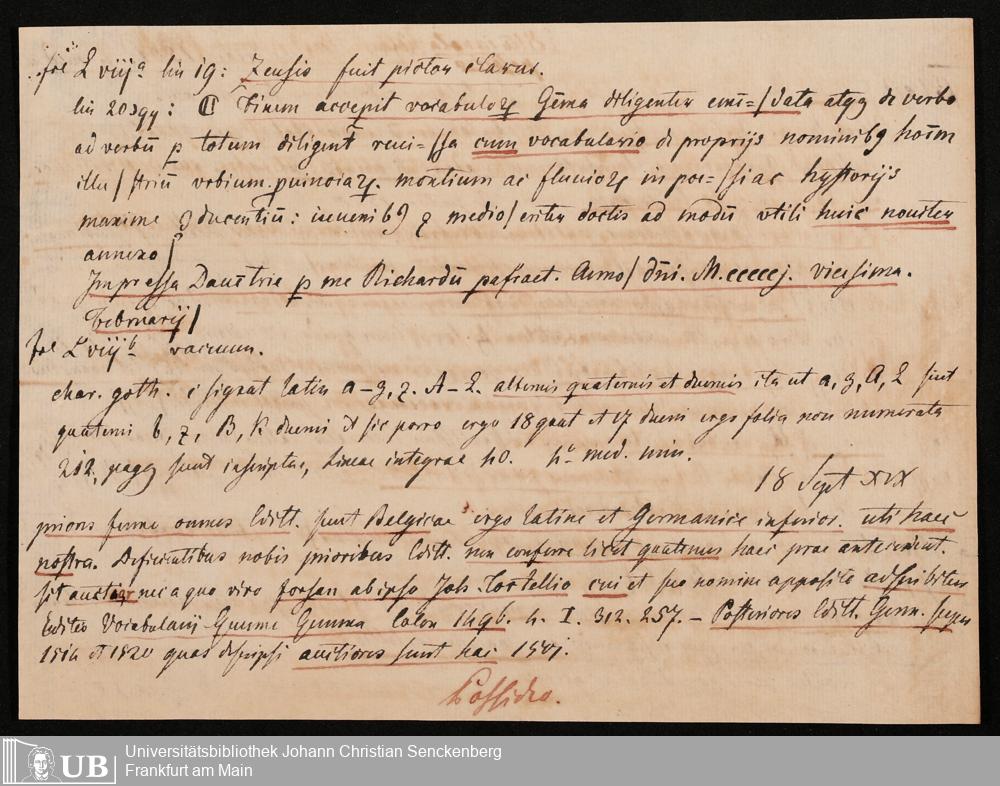 fol L viij a lin 19: Zensis fuit pictor clarus.
lin 20 sqq: ℂ Finem accepit vocabuloꝝ Gēma diligenter emē=/data atqꝫ de verbo
ad verbū ꝑ totum diligent̄ reui=/sa cum vocabulario de proprijs nominibꝰ hoīm
illu/striū vrbium. ꝓuinciaꝝ. montium ac fluuioꝝ in poe=/si ac hystorijs
maxime ꝯducentiū: iuuenibꝰ ꞇ medio/criter doctis ad modū vtili huic nouiter
annexo/
Impressa Dauētrie ꝑ me Richardū pafraet. Anno/ dñi. M.cccccj. vicesima.
Februarij/
fol L viij b vacuum.
char. goth. c signat latin a–z, ꝛ. A–L. alternis quaternis et duernis ita ut a, z, A, L sint
quaterni b, ꝛ, B, K duerni et sic porro ergo 18 quat et 17 duerni ergo folia non numerata
212, pagg sunt inscriptae, lineae integrae 40. 4º med. min.
18 Sept XIX
priores ferme omnes Editt. sunt Belgicae ergo latine et Germanice inferior. uti haec
nostra. Deficientibus nobis prioribus Editt. non conferre licet quatenus haec prae antecedent.
sit auctior nec a quo viro forsan ab ipso Joh. Tortellio cui et suo nomine apposito adscribitur
Editio Vocabularii Gemme Gemma Colon 1496. 4. I. 312. 257. – Posteriores Editt. Germ. 
1514 et 1520 quas descripsi auctiores sunt hac 1501.
Possideo.
Universitätsbibliothek Johann Christian Senckenberg
Frankfurt am Main
UB